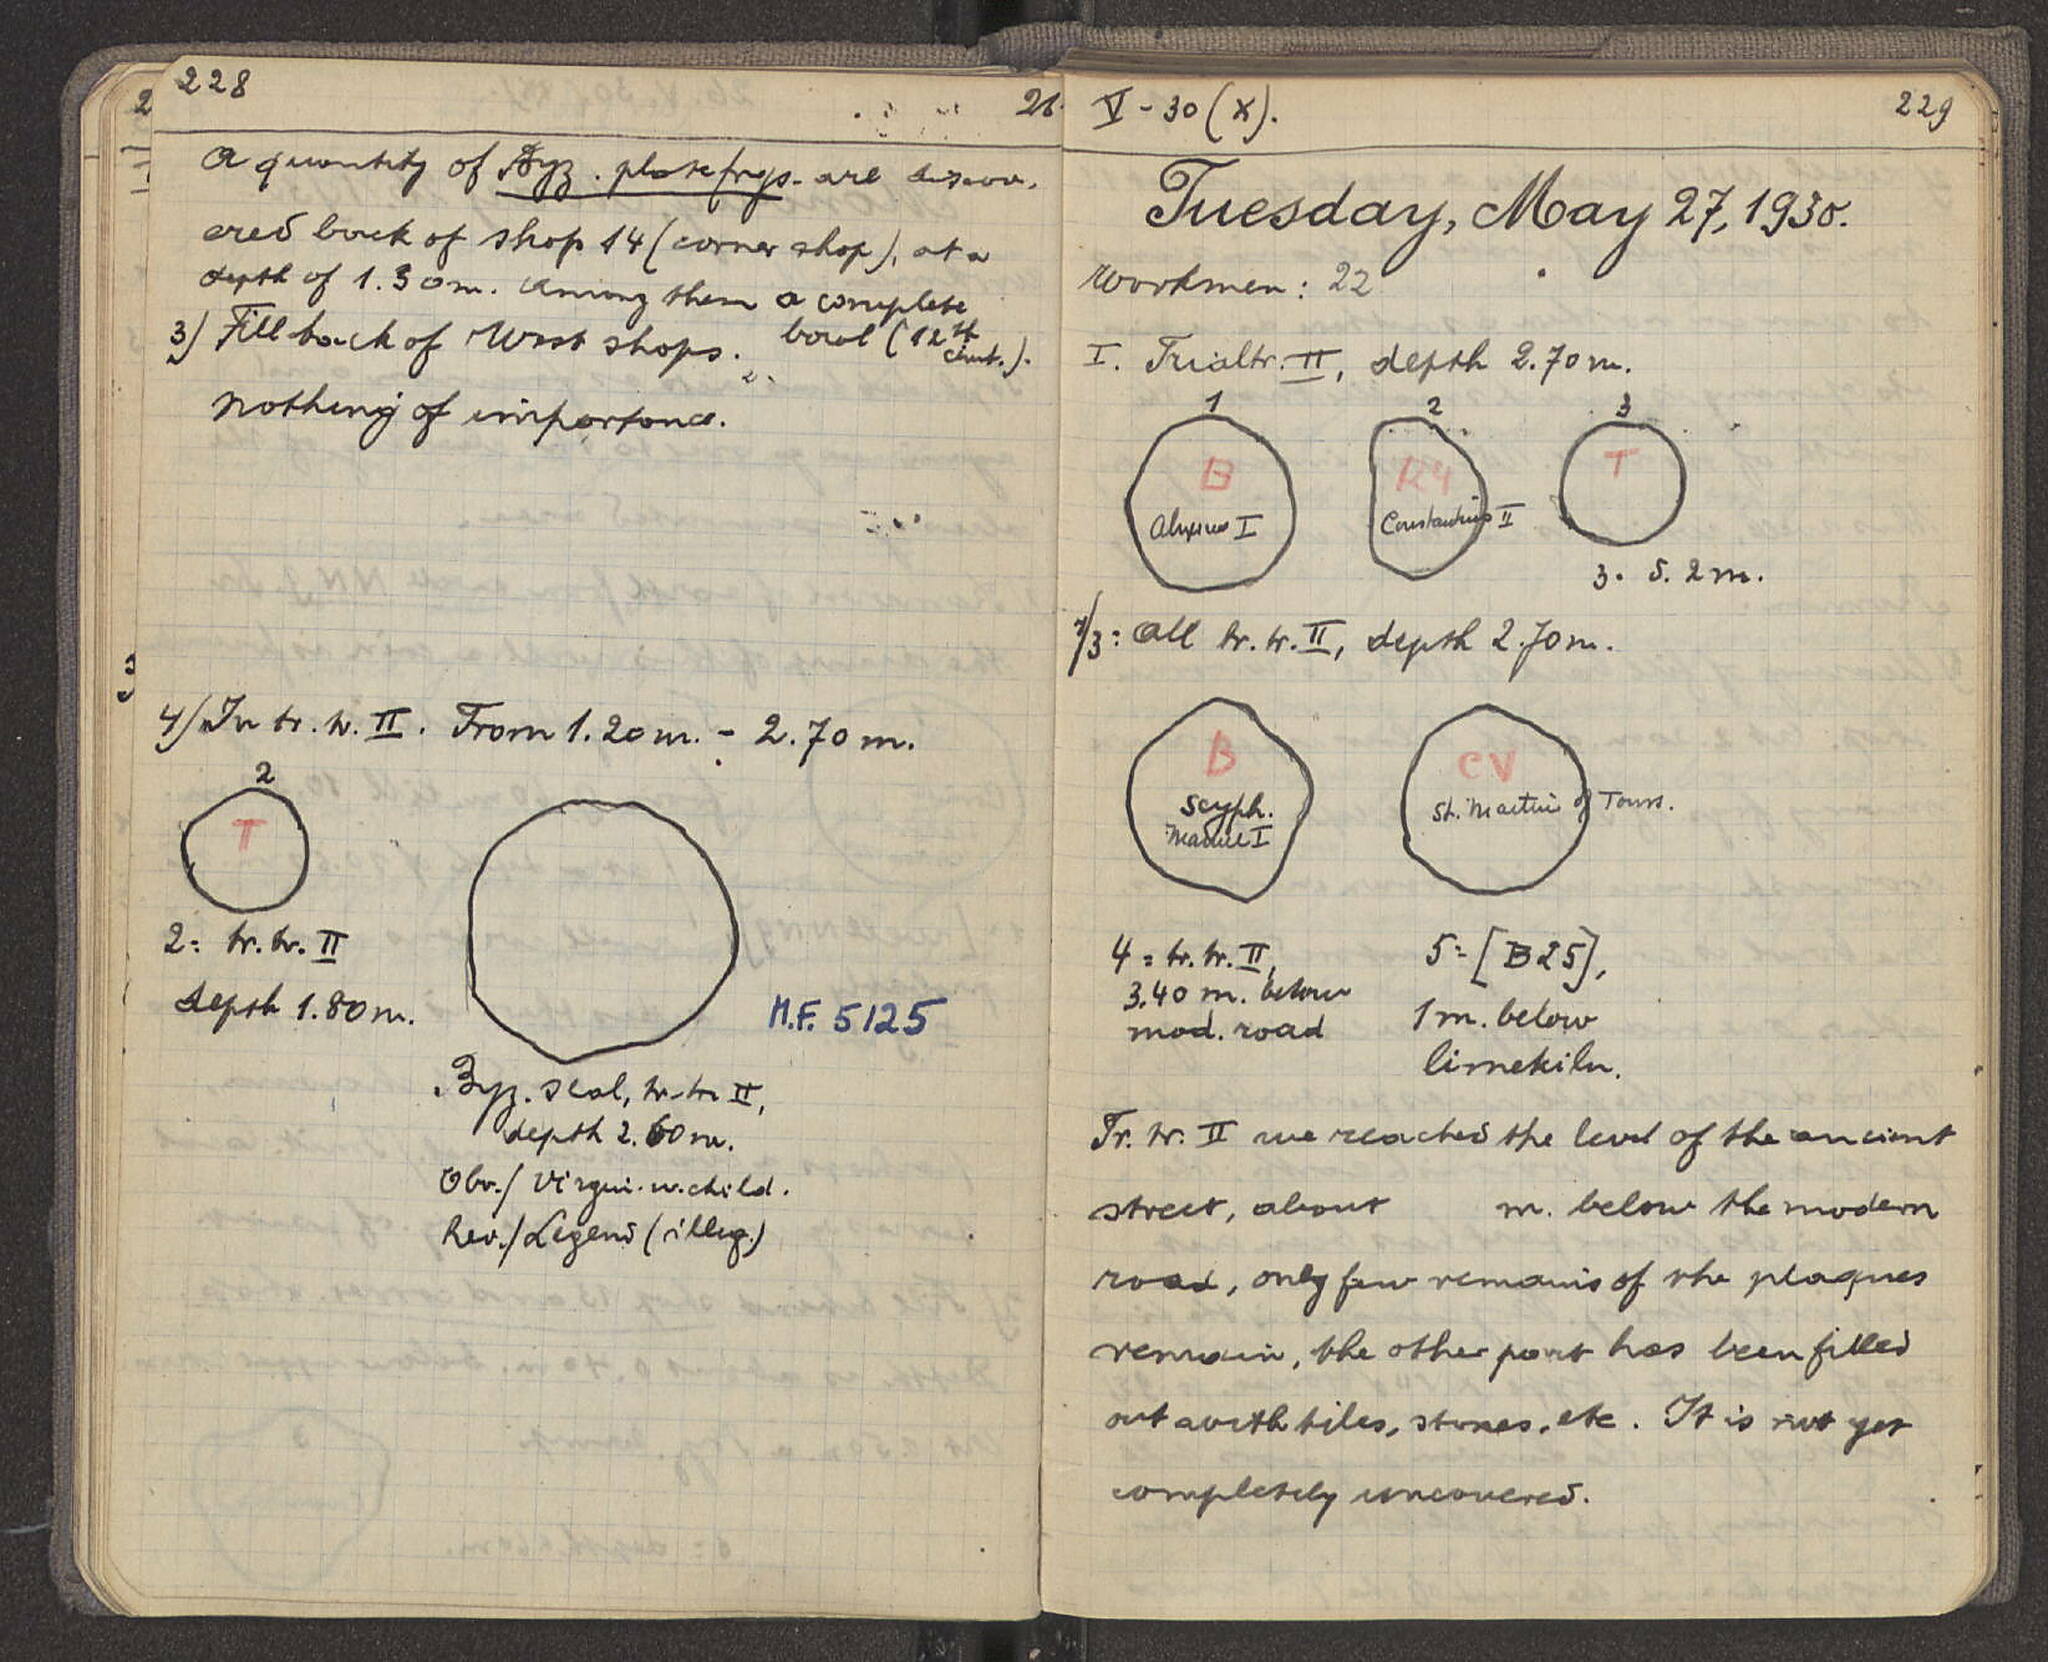 228
26
A quantity of Byz. plate frgs. are discov-
ered back of shop 14 (corner shop), at a
depth of 1.30m. Among them a complete
bowl (12th cent.).
3) Fill back of West shops.
Nothing of importance.
4) In tr. tr. II. From 1.20m. - 2.70m.
2
T
2: tr. tr. II
depth 1.80m.
M.F. 5125
Byz. seal, tr. tr. II,
depth 2.60m.
Obv./ Virgin w. child.
Rev./ Legend (illeg.)
V - 30 (X).
229
Tuesday, May 27, 1930.
Workmen: 22
I. Trialtr. II, depth 2.70m.
1
2
3
B
Alexius I
R4
Constantius II
T
3. 5. 2m.
1/3: All tr. tr. II, depth 2.70m.
B
Scyph.
Manuel I
CV
St. Martin of Tours.
4 = tr. tr. II,
3.40 m. below
mod. road
5 = [B25],
1m. below
limekiln.
Tr. tr. II we reached the level of the ancient
street, about m. below the modern
road, only few remains of the plaques
remain, the other part has been filled
out with tiles, stones, etc. It is not yet
completely uncovered.